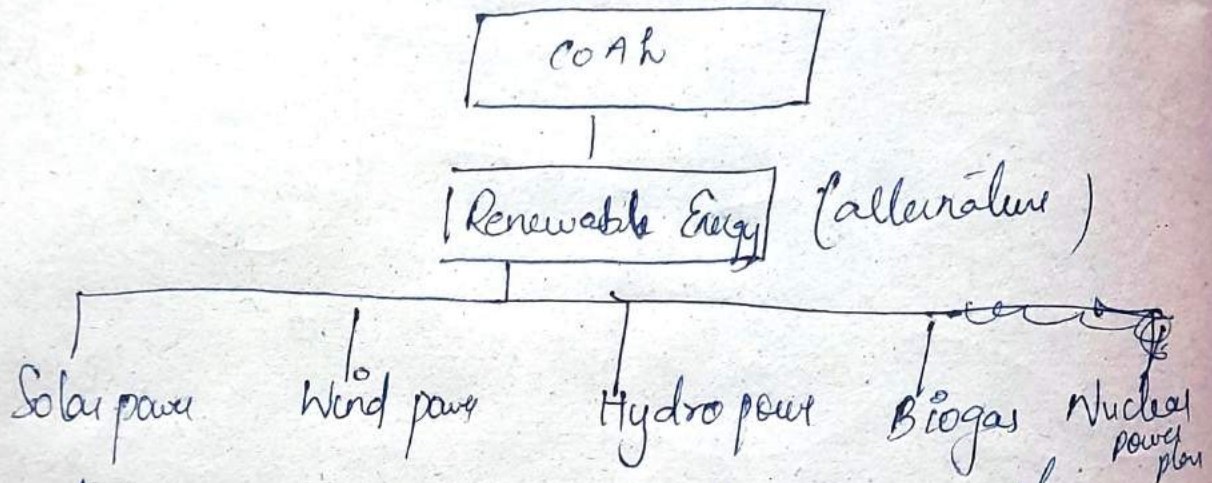 COAL
Renewable Energy (alternative)
Solar power Wind power Hydro power Biogas Nuclear
power
plant